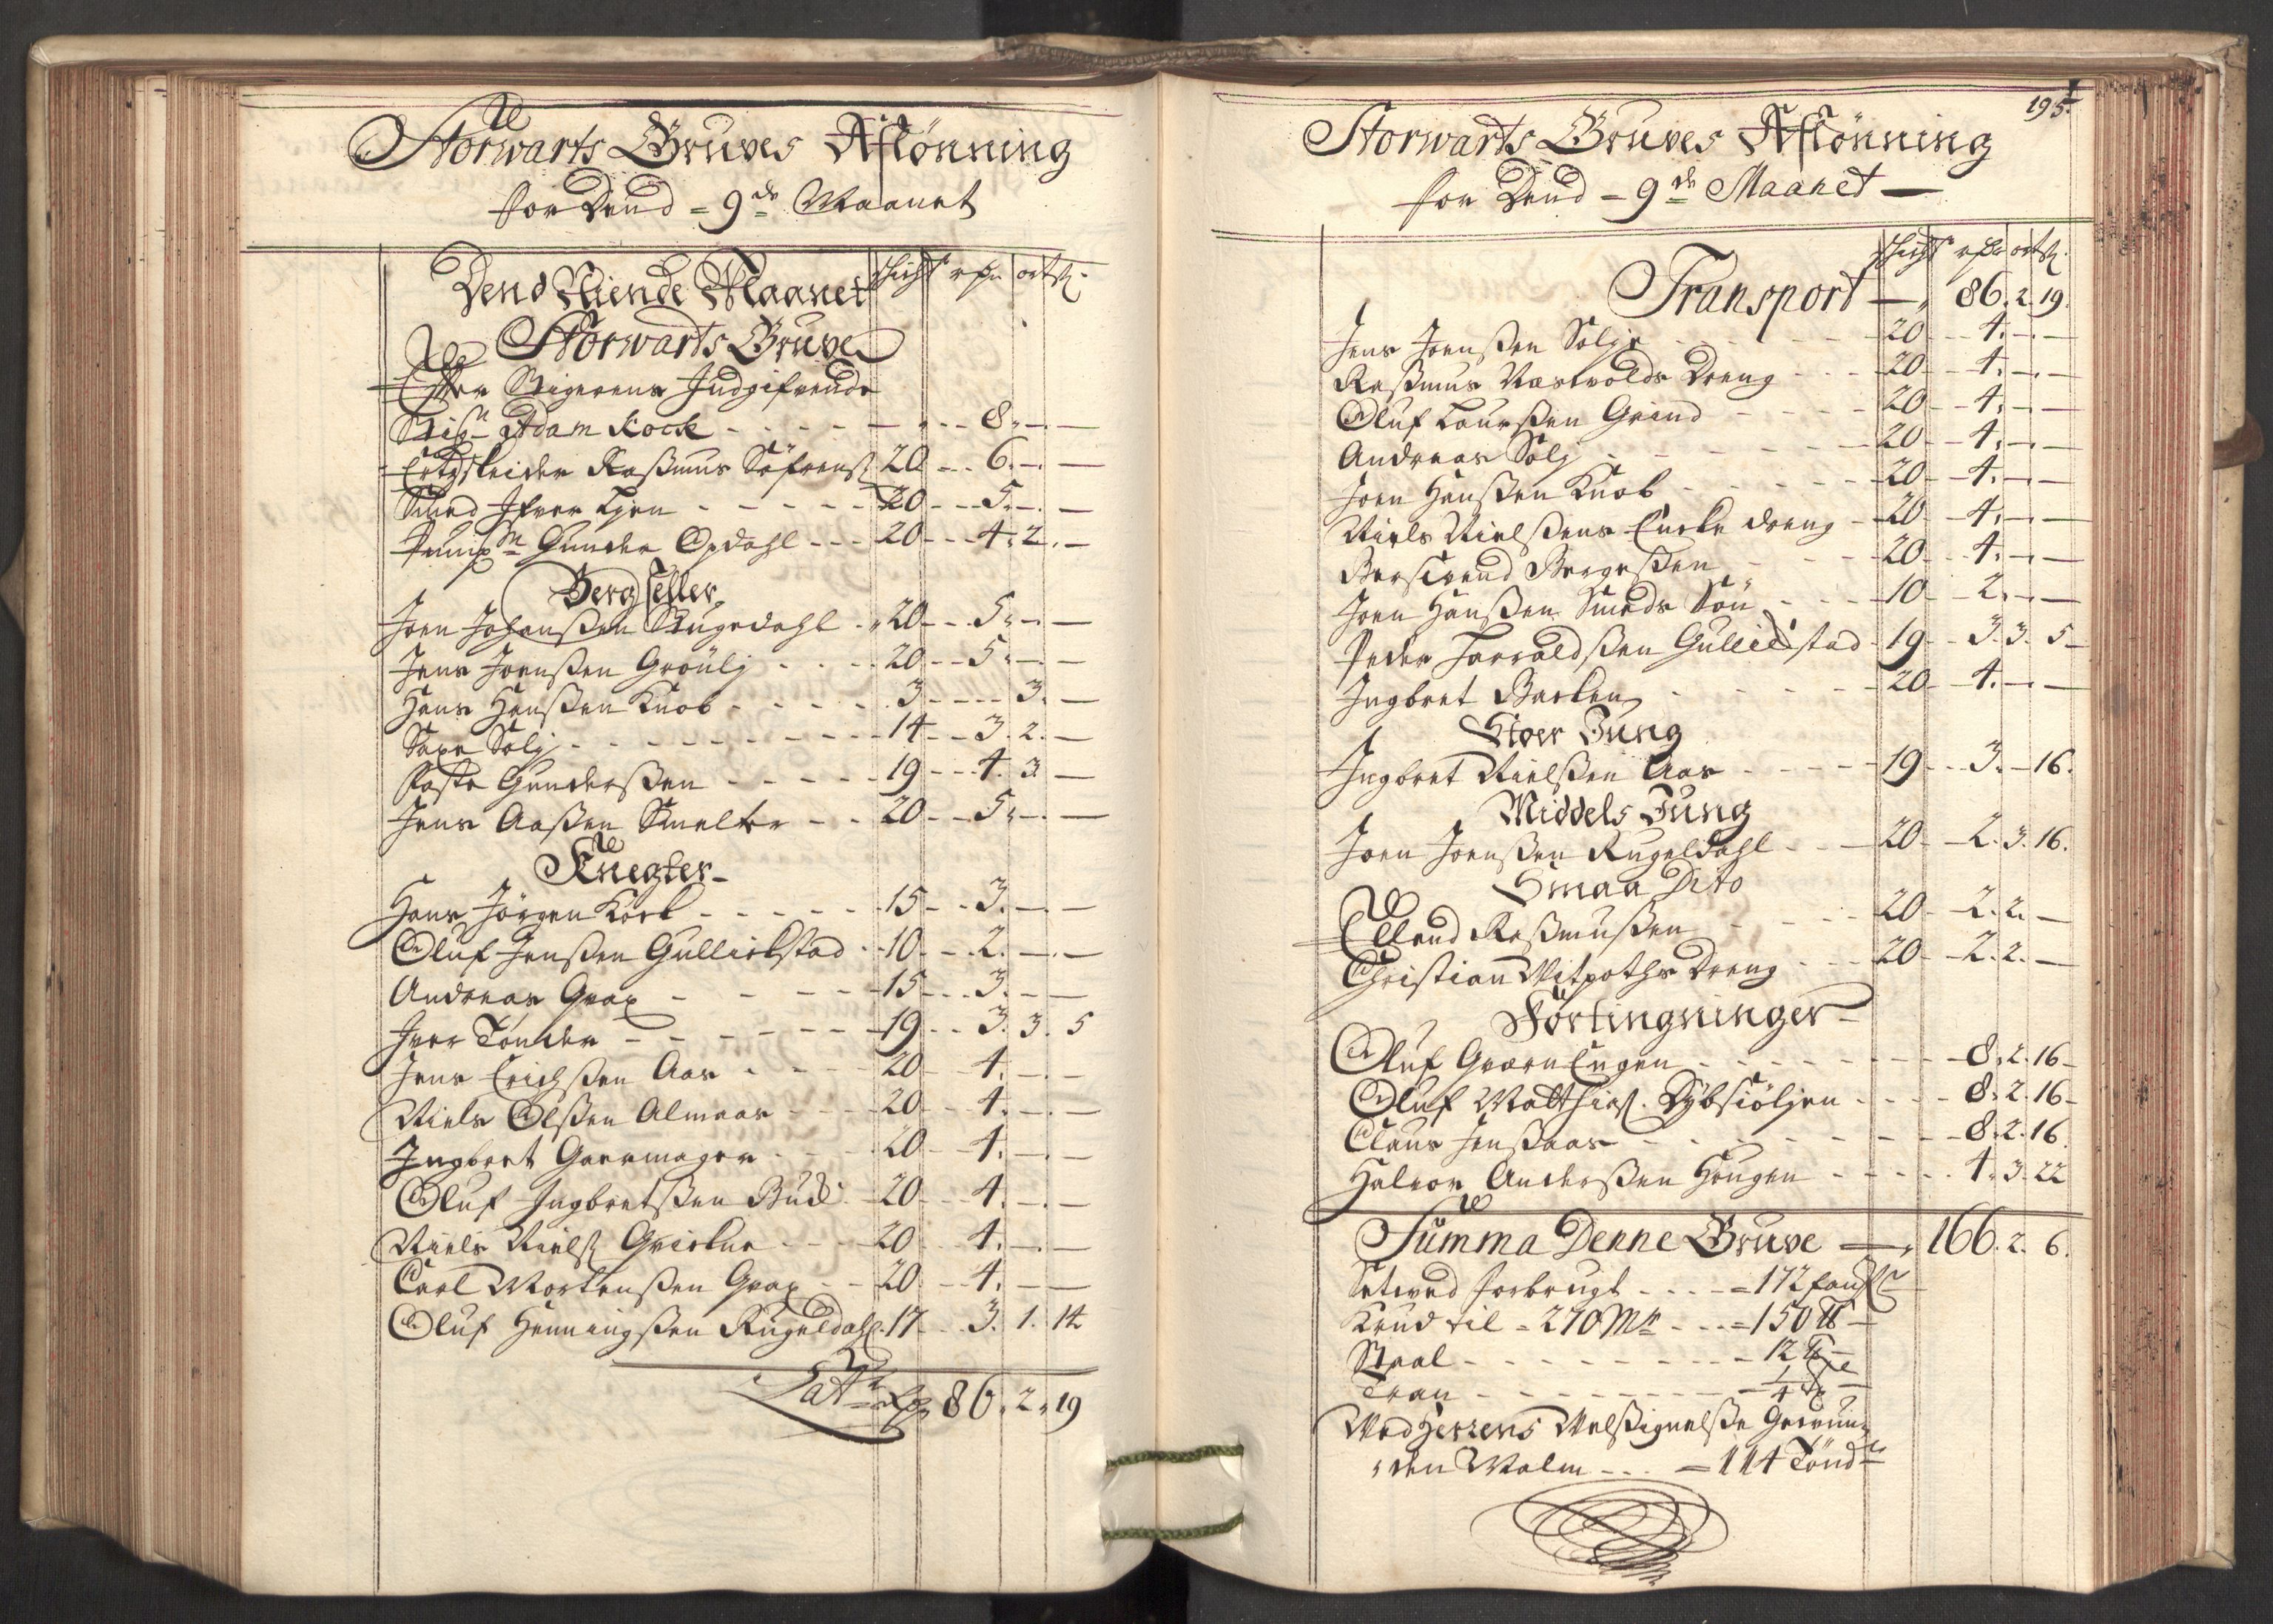 Storwarts Gruves Aflönning
for Dend = 9de Maanet
Dend Niende Maanet schicht rdr ort ß
Storwarts Gruve
Efter Stigerens Indgifvende
Stigr Adam Kock - - - 8. - -
Ertzskeider Rasmus Söfrens 20 - 6. - -
Smed Ifver Kjen - - 20 - 5. - -
Pumpm Gunder Opdahl - - 20 - 4. 2. -
Bergseller
Joen Johanßen Rugedahl - 20 - 5. - -
Jens Joenßen Groülj - 20 - 5. - -
Hans Hanßen Knob - - 3 - - 3. -
Saxe Solj - - 14 - 3. 2. -
Faste Gunderßen - - 19 - 4. 3 -
Jens Aaßen Smelter - - 20 - 5. - -
Knegter
Hans Jörgen Kock - - 15 - 3. - -
Oluf Jenßen Gullickstad - 10 - 2. - -
Andreas Grax - - 15 - 3. - -
Iver Tønder - - 19 - 3. 3. 5
Jens Erichßen Aas - - 20 - 4. - -
Niels Olßen Almaas - - 20 - 4. - -
Ingbret Garmager - - 20 - 4. - -
Oluf Ingbretßen Bud - 20 - 4. - -
Niels Niels - - 20 - 4. - -
Carl Mortenßen Grax - - 20 - 4. - -
Oluf Henningßen Rugeldahl 17 - 3. 1. 14
Latr 86. 2. 19
195.
Storwarts Gruves Aflönning
for Dend = 9de Maanet
schicht rdr ort ß
Transport - 86. 2. 19.
Jens Joenßen Solje - - 20 - 4. - -
Raßmus Næsvolds Dreng - - 20 - 4. - -
Oluf Laurßen Grind - - 20 - 4. - -
Andreas Solj - - 20 - 4. - -
Joen Hanßen Knob - - 20 - 4. - -
Niels Nielßens Encke dreng - 20 - 4. - -
Bersvend Bergeßen - - 20 - 4. - -
Joen Hanßen Smeds Sön - - 10 - 2. - -
Peder Harraldßen Gullickstad - 19 - 3. 3. 5
Ingbret Backen - - 20 - 4. - -
Stoer Jung
Ingbret Nielßen Aas - - 19 - 3. - 16.
Middels Jung
Joen Joenßen Rugeldahl - - 20 - 2. 3. 16.
Smaa Dito
Ellend Raßmußen - - 20 - 2. 2. -
Christian Witpoths Dreng - - 20 - 2. 2. -
Fortingninger
Oluf Grarn Engen - - 8. 2. 16
Oluf Matthias. Dybsiöljen - - 8. 2. 16
Claus Jenßaas - - 8. 2. 16
Halvor Anderßen Hougen - - 4. 3. 22
Summa Denne Gruve - 166. 2. 6.
Setved forbrugt - - = 172 fauf
Krud til = 270 Mk - - = 150 ℔
Staal - - = 12 ℔
Tran - - = 1/4
Med Herrens Velßignelße Gevun,,
,,den Malm - - = 114 Tønder